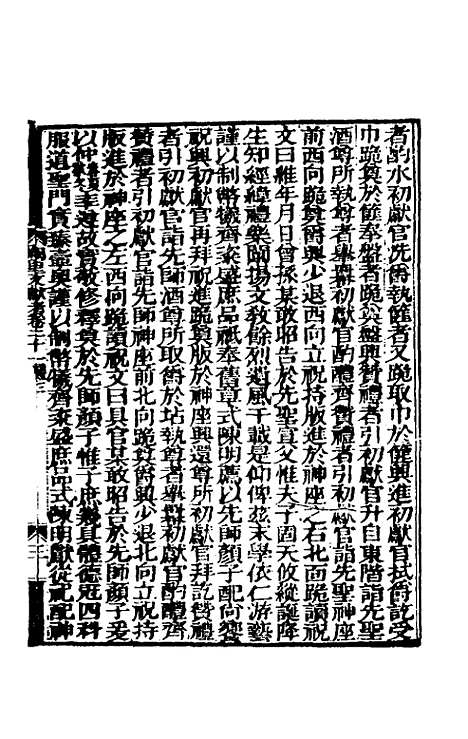 者酌水初獻官洗爵執篚者又跪取巾於篚興進初獻官拭爵訖受
巾跪奠於篚奉盤者跪奠盤興贊禮者引初獻官升自東階詣先聖
酒尊所執尊者舉冪初獻官酌醴齊贊禮者引初獻官詣先聖神座
前西向跪奠爵興少退西向立祝持版進於神座之右北面跪讀祝
文曰維年月日曾孫某敢昭告於先聖宣父惟夫子固天攸縱誕降
生知經緯禮樂闡揚文教餘烈遺風千載是仰俾茲末學依仁游藝
謹以制幣犧齊粢盛庶品祗奉舊章式陳明薦以先師顏子配尚饗
祝興初獻官再拜祝進奠版於神座興還尊所初獻官拜訖贊禮
者引初獻官詣先師酒尊所取爵於坫執尊者舉冪初獻官酌醴齊
贊禮者引初獻官詣先師神座前北向跪奠爵興少退北向立祝持
版進於神座之左西向跪讀祝文曰具官某敢昭告於先師顏子爰
以仲春仲秋率遵故實敬修釋奠於先師顏子惟子庶幾具體德冠四科
服道聖門實臻壼奧謹以制幣犧齊粢盛庶品式陳明獻從祀配神